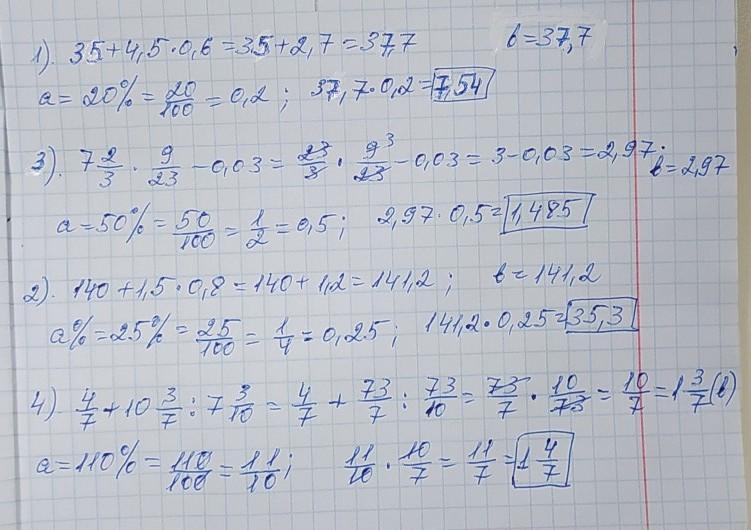 1). 35+4,5·0,6=35+2,7=37,7   b=37,7
a=20%=20/100=0,2; 37,7·0,2=7,54
3). 7 2/3 · 9/23 -0,03= 23/3 · 9/23 3 -0,03=3-0,03=2,97. b=2,97
a=50%=50/100=1/2=0,5; 2,97·0,5=1,485
2). 140+1,5·0,8=140+1,2=141,2; b=141,2
a%=25%=25/100=1/4=0,25; 141,2·0,25=35,3
4). 4/7+10 3/7:7 3/10=4/7+73/7:73/10=73/7·10/73=10/7=1 3/7(b)
a=110%=110/100=11/10; 11/10·10/7=11/7=1 4/7